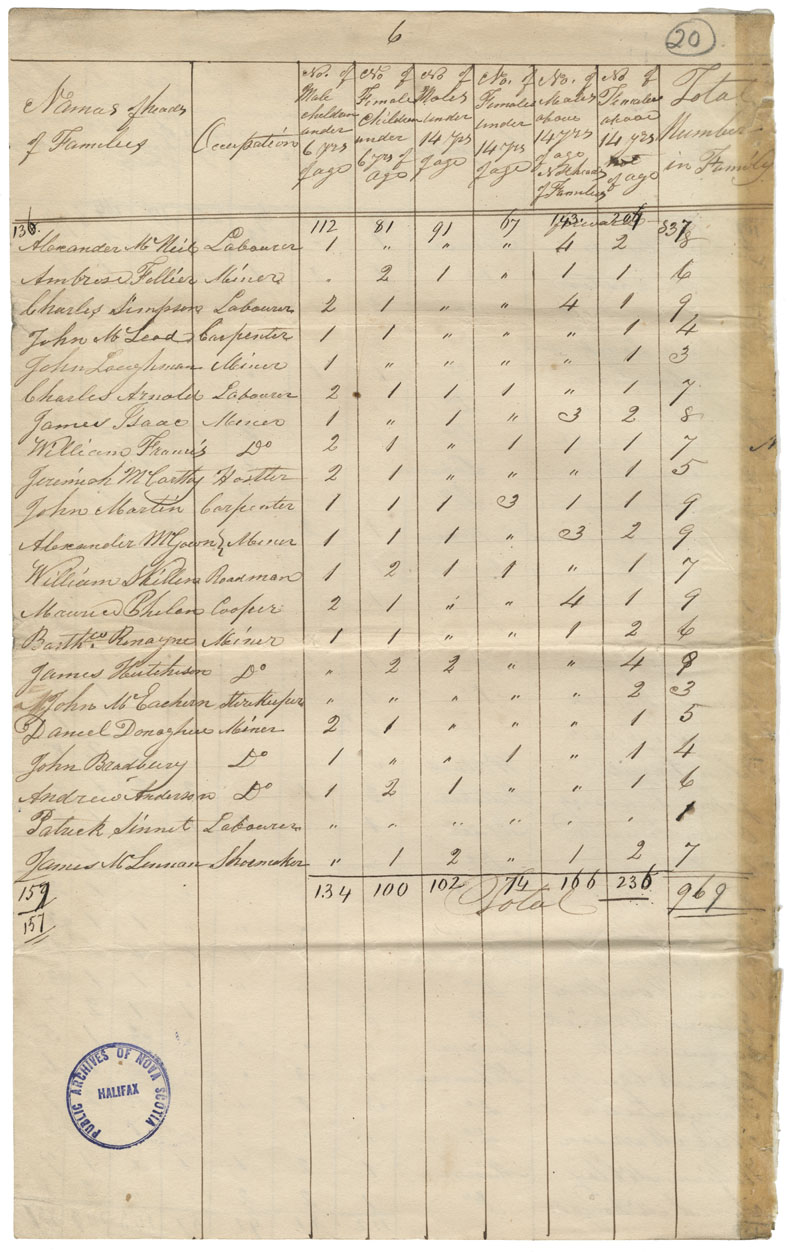 6
20
Names of heads of Families | Occupation | No. of Male children under 6 yrs of age | No of Female Children under 6 yrs of age | No of Males under 14 yrs of age | No. of Females under 14 yrs of age | No. of Males above 14 yrs of age Not heads of Families | No of Females above 14 yrs of age | Total Number in Family
136. 112 81 91 67 143 204 837
forward
Alexander McNeil Labourer 1 " " " 4 2 8
Ambrose Tellier Miner . 2 1 " 1 1 6
Charles Simpson Labourer 2 1 " " 4 1 9
John McLeod Carpenter 1 1 " " " 1 4
John Loughman Miner 1 " " " " 1 3
Charles Arnold Labourer 2 1 1 1 " 1 7
James Isaac Miner 1 " 1 " 3 2 8
William Francis Do 2 1 " 1 1 1 7
Jeremiah McCarthy Hostler 2 1 " " " 1 5
John Martin Carpenter 1 1 1 3 1 1 9
Alexander McGown Miner 1 1 1 " 3 2 9
William Skillen Roadman 1 2 1 1 " 1 7
Maurice Phelan Cooper 2 1 " " 4 1 9
Barthco Ronayne Miner 1 1 " " 1 2 6
James Hutchison Do " 2 2 " " 4 9
John McEachern Storekeeper " " " " " 2 3
Daniel Donoghue Miner 2 1 " " " 1 5
John Bradbury Do 1 " " 1 " 1 4
Andrew Anderson Do 1 2 1 " " 1 6
Patrick Sinnet Labourer " " " " " " 1
James McLennan Shoemaker " 1 2 " 1 2 7
157 134 100 102 74 166 236 969
Total
157
PUBLIC ARCHIVES OF NOVA SCOTIA
HALIFAX